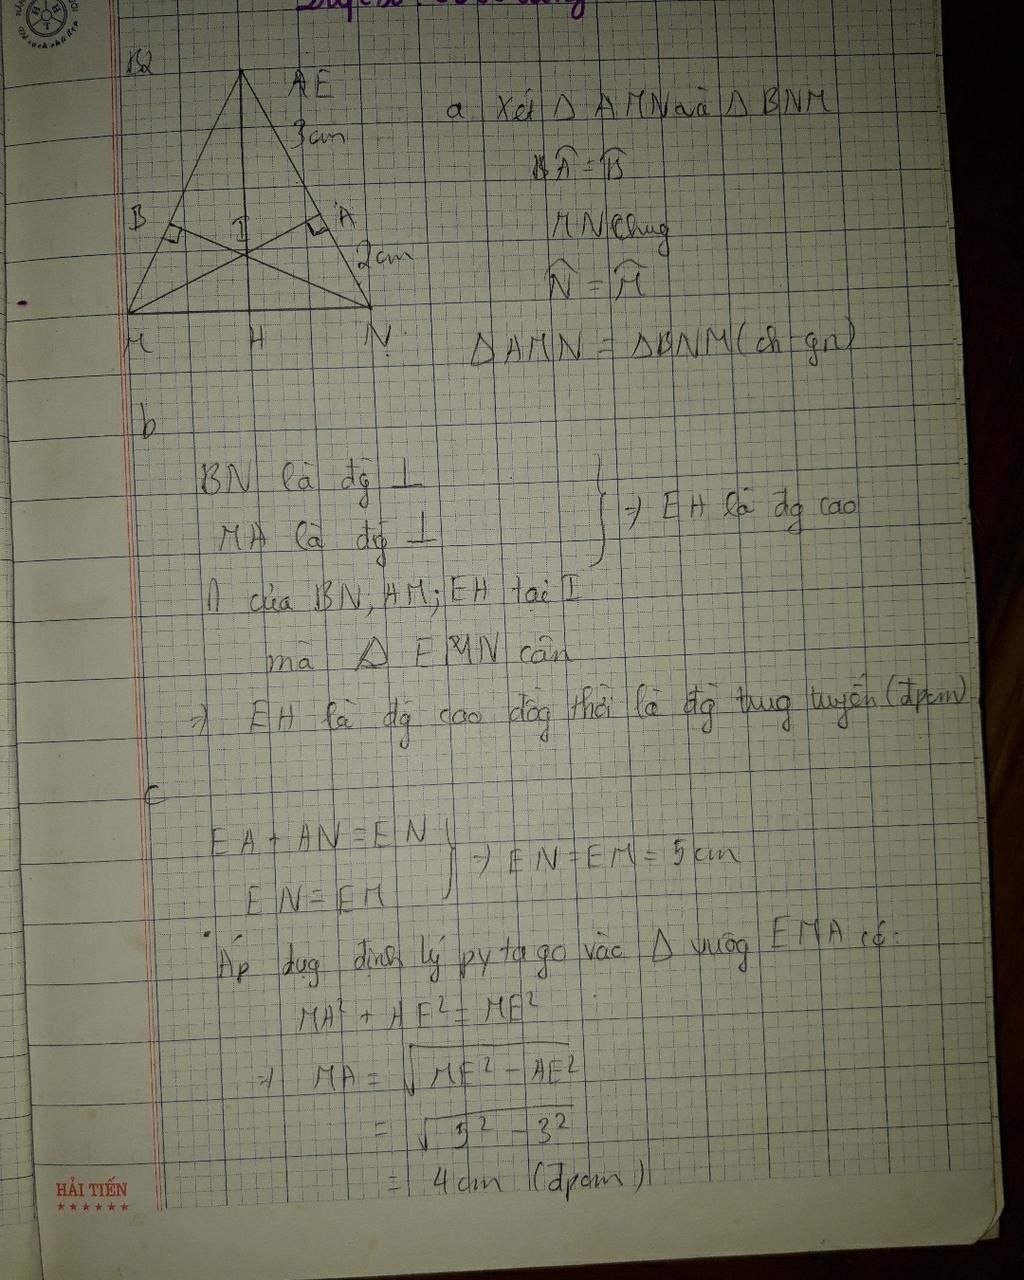 B2
E
AE
3cm
B
I
A
2cm
M
H
N
a Xét Δ AMN và Δ BNM
Â = B̂
MN chug
N̂ = M̂
Δ AMN = Δ BNM (ch-gn)
b
BN là đg ⊥
MA là đg ⊥
⇒ EH là đg cao
∩ của BN; AM; EH tại I
mà Δ EMN cân
⇒ EH là đg cao đồg thời là đg trug tuyến (đpcm)
c
EA + AN = EN
EN = EM
⇒ EN = EM = 5cm
Áp dụg định lý pytago vào Δ vuôg EMA có:
MA² + AE² = ME²
⇒ MA = √ME² - AE²
= √5² - 3²
= 4cm (đpcm)
HẢI TIẾN